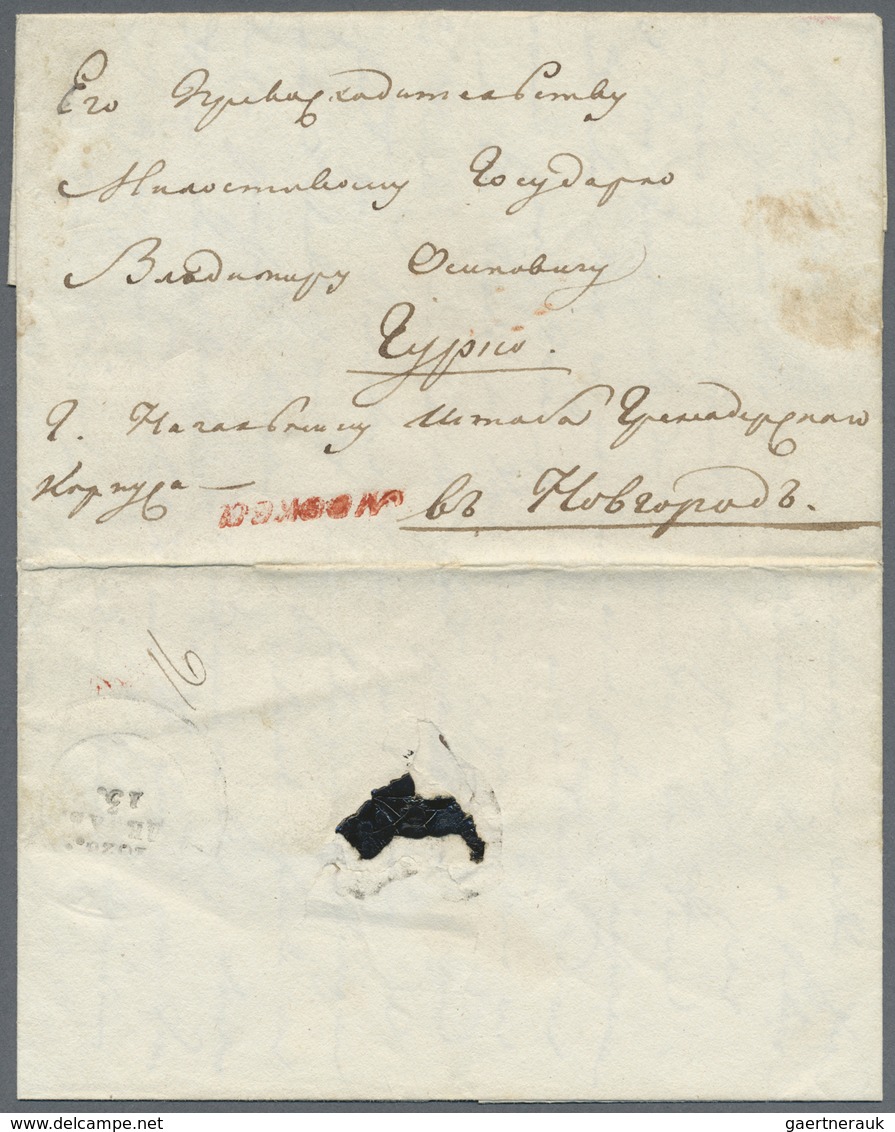 Его Превосходительству
Милостивому Государю
Владимиру Осиповичу
Гурко.
Г. Начальнику Штаба Гренадерского
Корпуса —
въ Новгородъ.
МОСКВА
16
15.
gaertnerauk